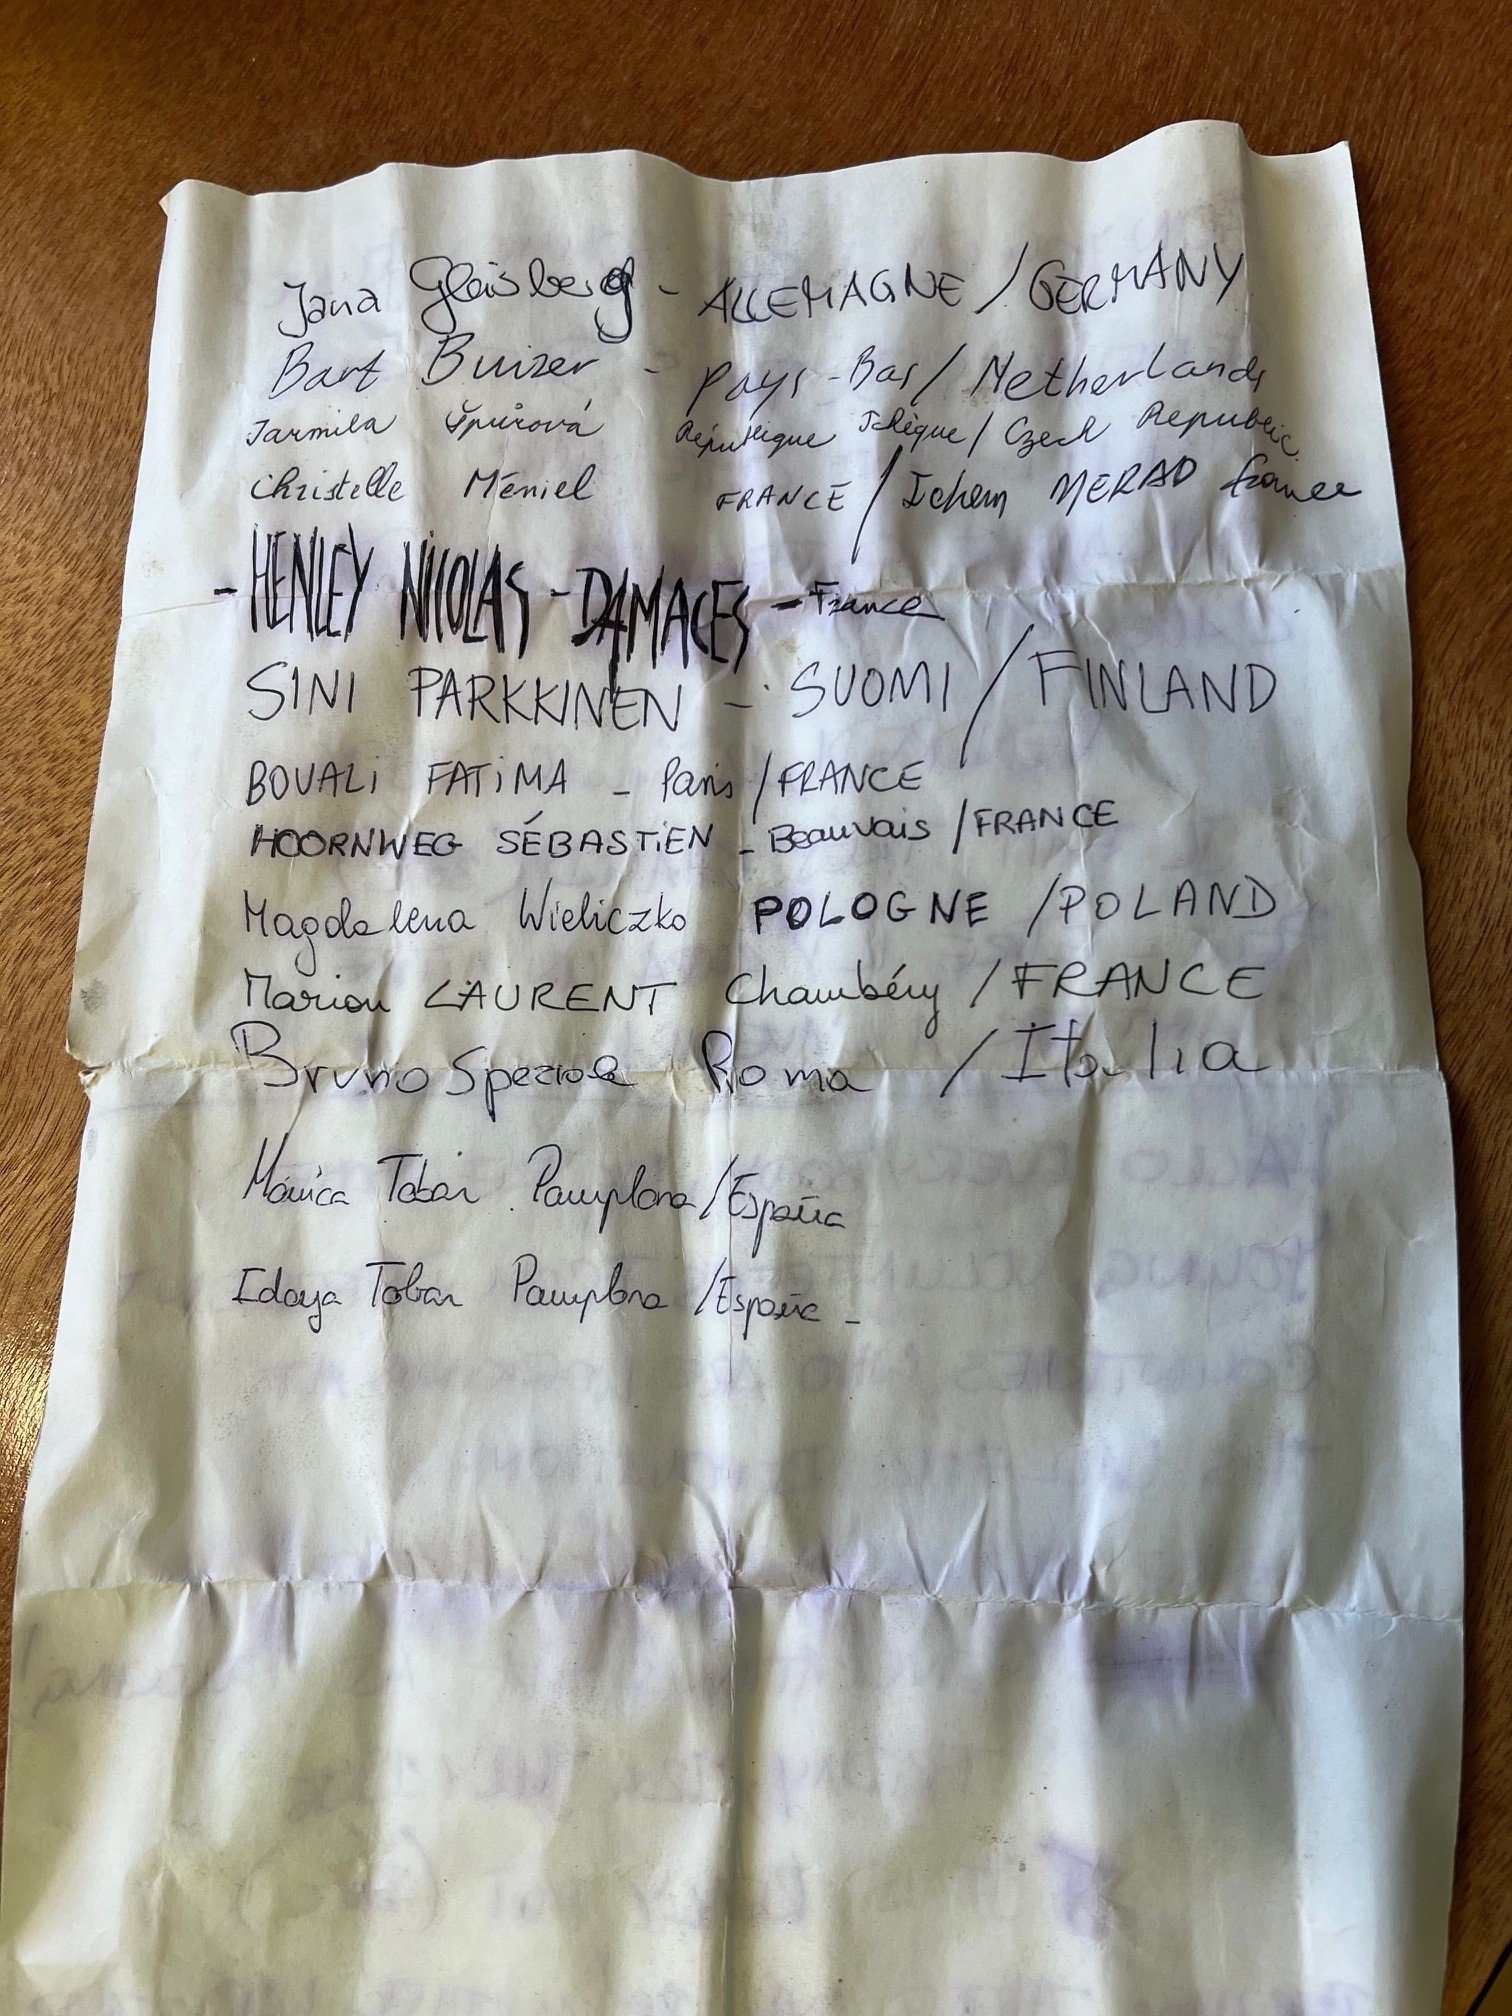 Jana Gleisberg - ALLEMAGNE / GERMANY
Bart Buizer - Pays-Bas / Netherlands
Jarmila Špůrová République Tchèque / Czech Republic
Christelle Méniel FRANCE / Ichem MERAD france
- HENLEY NICOLAS - DAMACES - France
SINI PARKKINEN - SUOMI / FINLAND
BOUALI FATIMA - Paris / FRANCE
HOORNWEG SÉBASTIEN - Beauvais / FRANCE
Magdalena Wieliczko POLOGNE / POLAND
Marion LAURENT Chambéry / FRANCE
Bruno Speziale Roma / Italia
Mónica Tobar Pamplona / España
Idoya Tobar Pamplona / España -